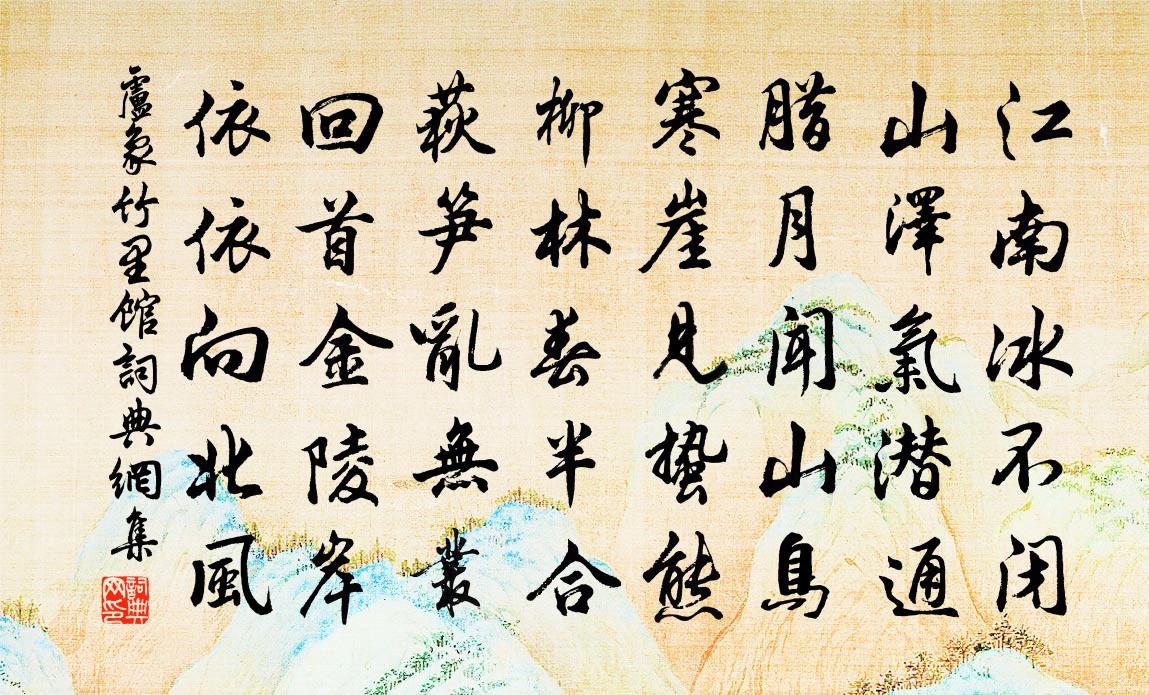 江南冰不闭
山澤氣潜通
腊月闻山鳥
寒崖見蟄熊
柳林春半合
荻笋亂無叢
回首金陵岸
依依向北風
盧象竹里館詞典網集
詞典网印